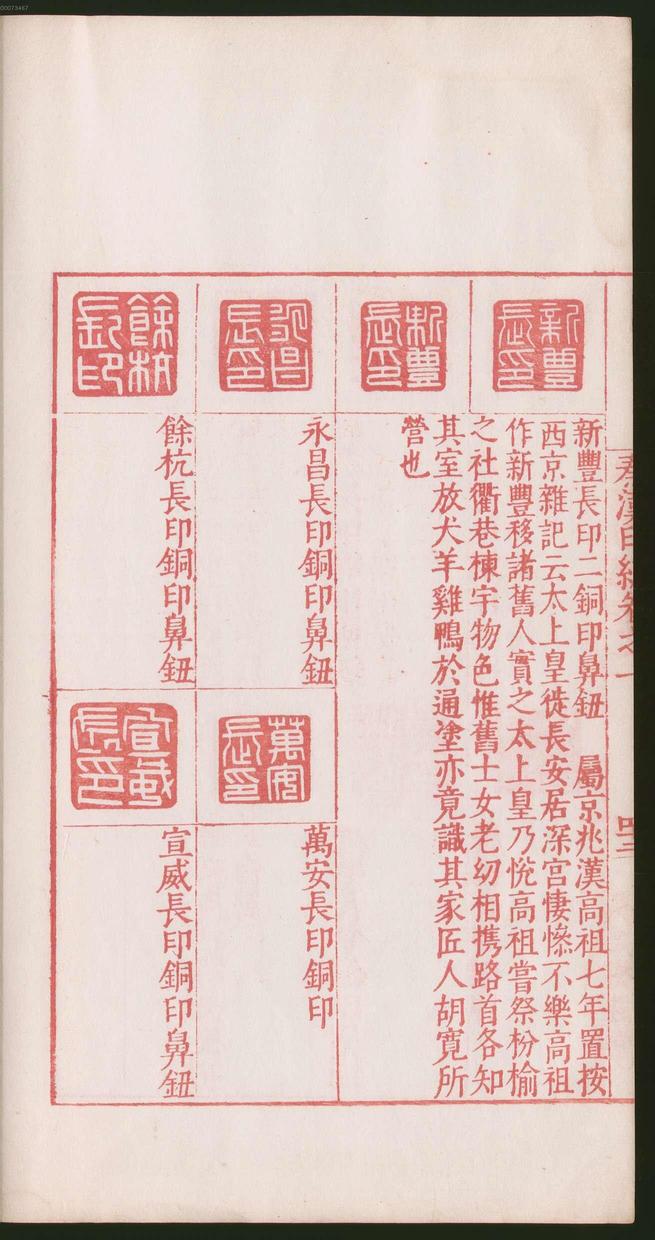 00073467
秦漢印統卷之一
四二
新豐長印
新豐長印
新豐長印二銅印鼻鈕　屬京兆漢高祖七年置按
西京雜記云太上皇徙長安居深宫悽愴不樂高祖
作新豐移諸舊人實之太上皇乃悅高祖嘗祭枌榆
之社衢巷棟宇物色惟舊士女老幼相携路首各知
其室放犬羊雞鴨於通塗亦竟識其家匠人胡寬所
營也
永昌長印
永昌長印銅印鼻鈕
萬安長印
萬安長印銅印
餘杭長印
餘杭長印銅印鼻鈕
宣威長印
宣威長印銅印鼻鈕